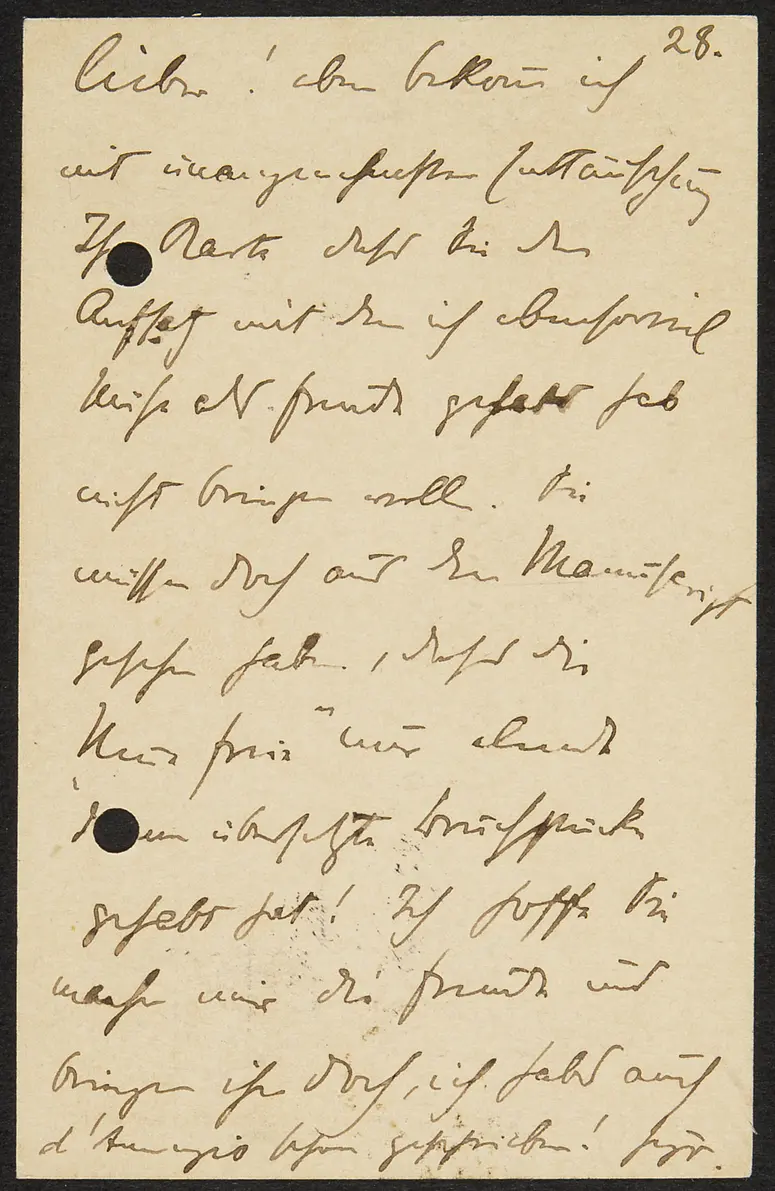 28.
Lieber! eben bekom̄ ich
mit unangenehmster Enttäuschung
Ihre Karte dass Sie den
Aufsatz mit dem ich ebensoviel
Mühe als Freude gehabt hab
nicht bringen wollen. Sie
müssen doch aus dem Manuscript
gesehen haben, dass die
Neue freie" nur elende
übersetzte Bruchstücke
gehabt hat! Ich hoffe Sie
machen mir die Freude und
bringen ihn doch, ich habs auch
d'Annunzio schon geschrieben! Hugo.